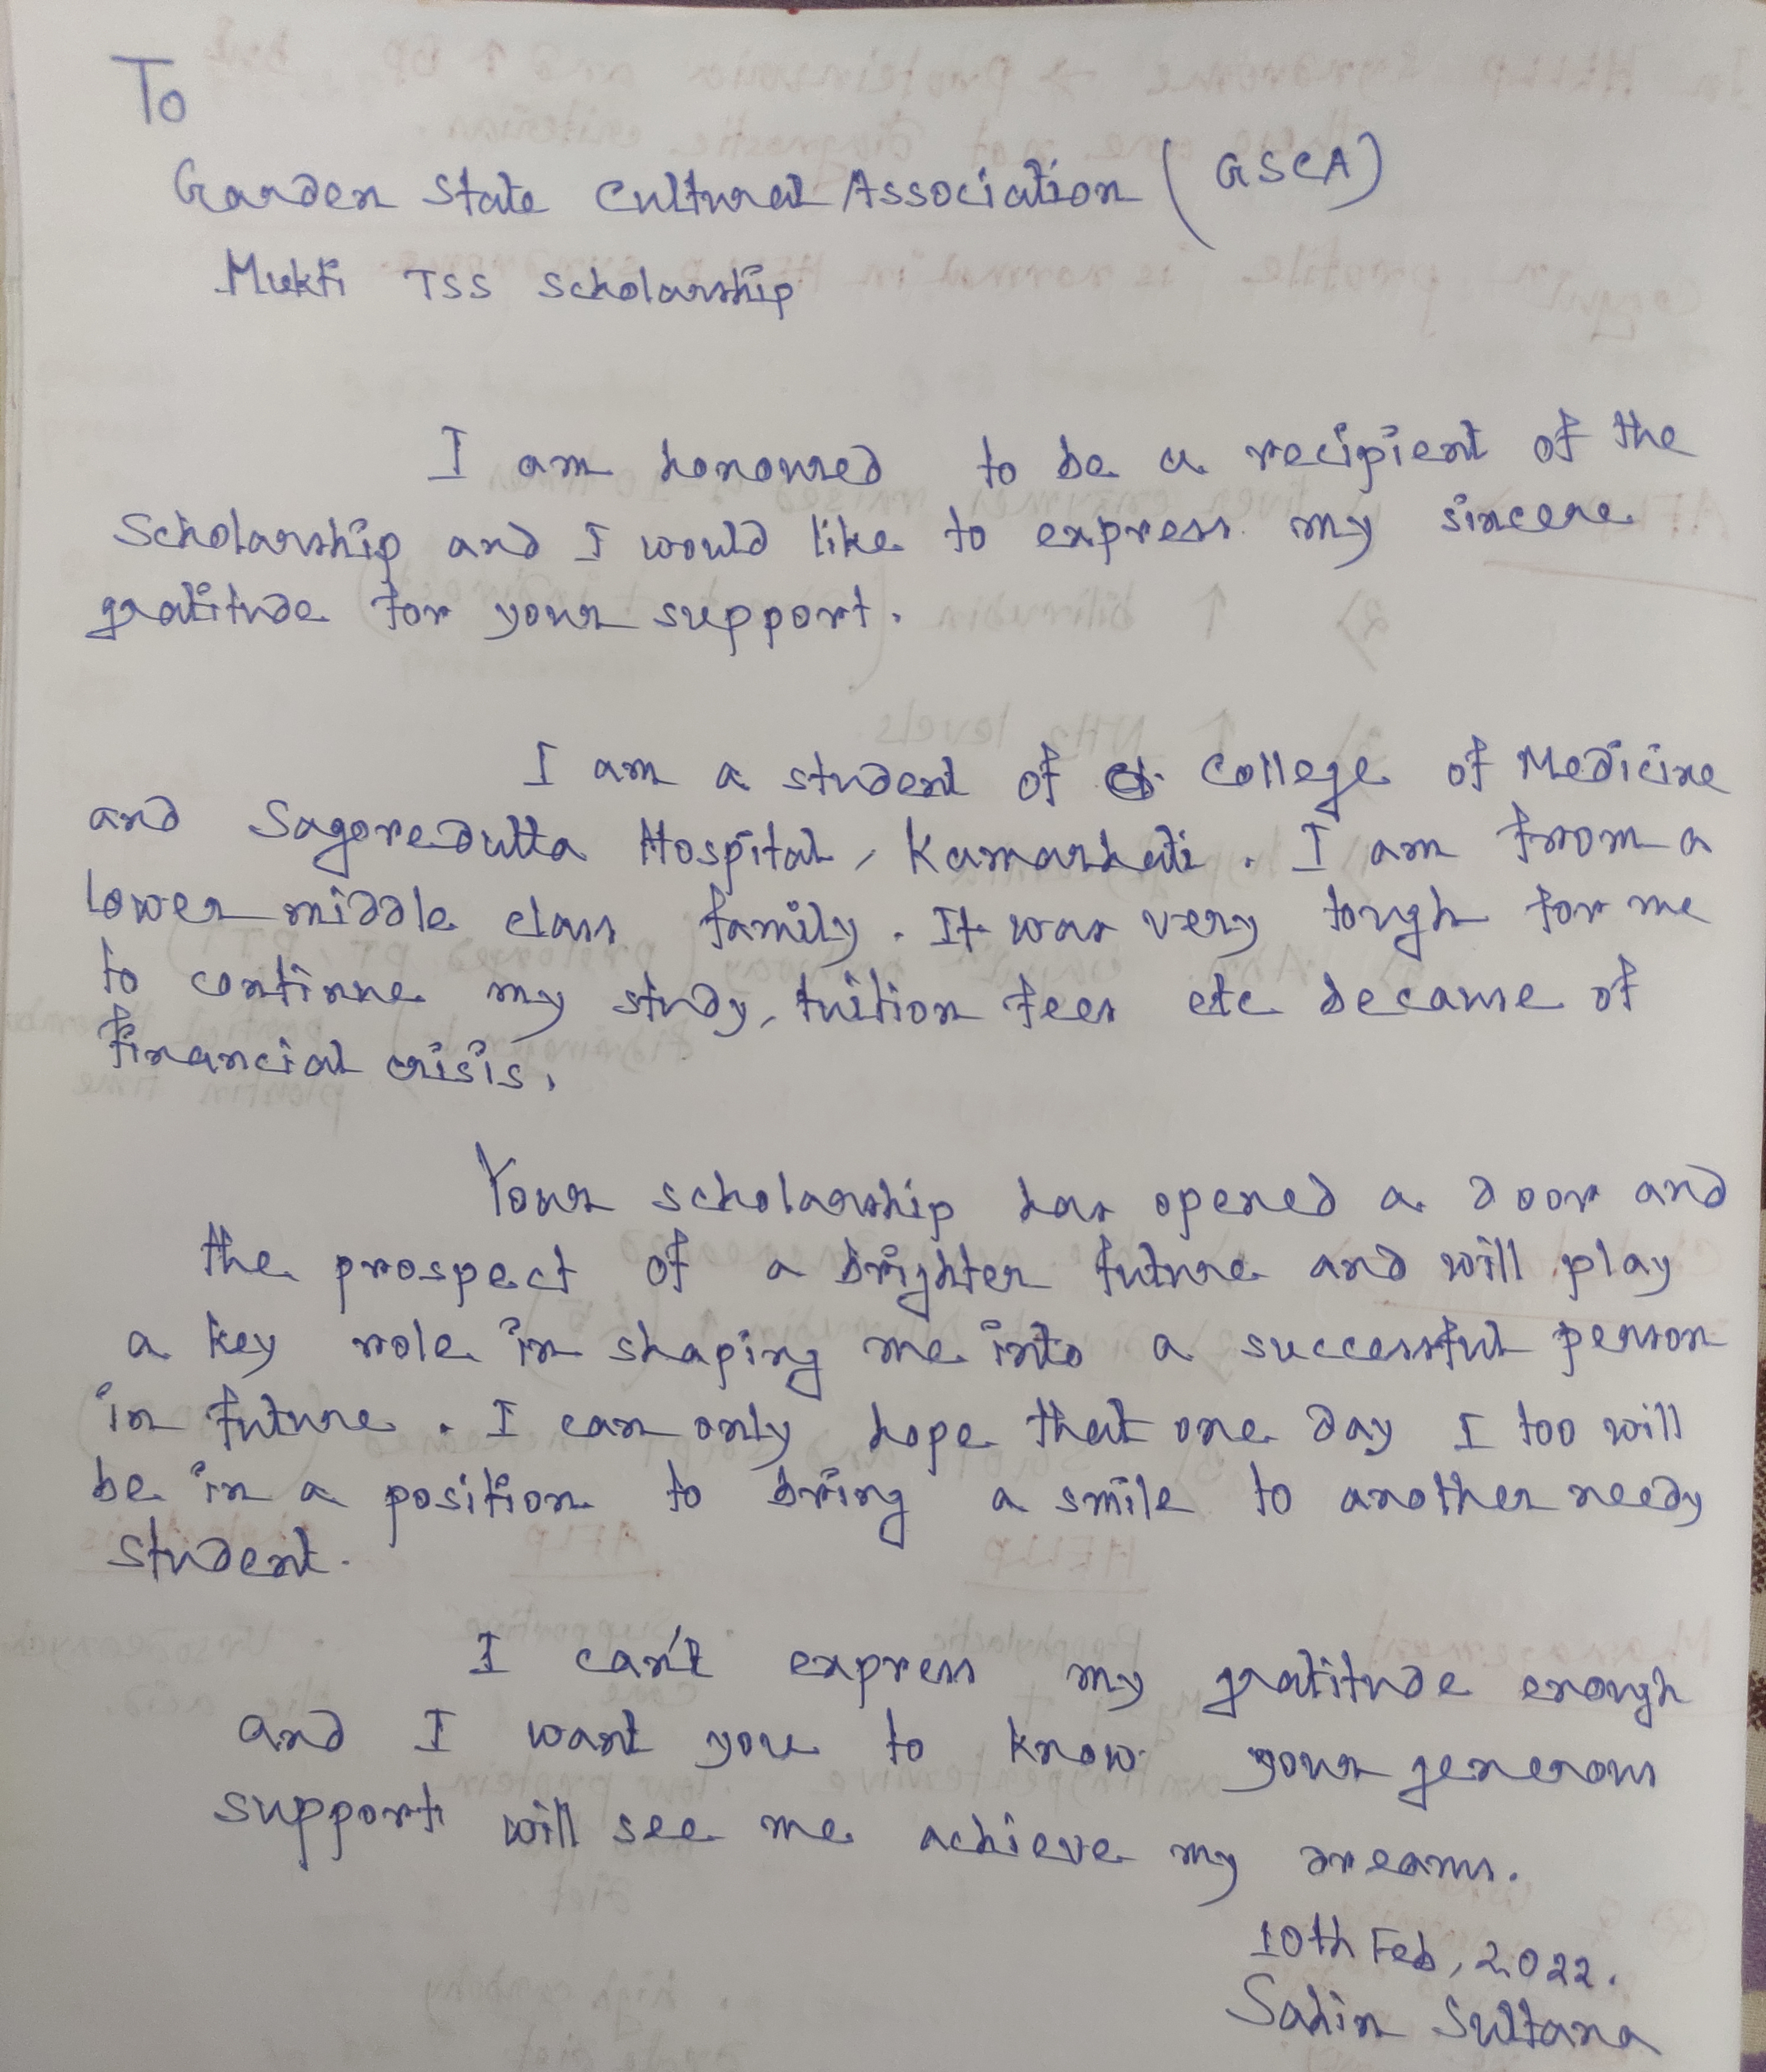 To
Garden State Cultural Association (GSCA)
Mukti TSS Scholarship
I am honoured to be a recipient of the
Scholarship and I would like to express my sincere
gratitude for your support.
I am a student of College of Medicine
and Sagoredutta Hospital, Kamarhati. I am from a
lower middle class family. It was very tough for me
to continue my study, tuition fees etc because of
financial crisis.
Your scholarship has opened a door and
the prospect of a brighter future and will play
a key role in shaping me into a successful person
in future. I can only hope that one day I too will
be in a position to bring a smile to another needy
student.
I can't express my gratitude enough
and I want you to know your generous
support will see me achieve my dreams.
10th Feb, 2022.
Sahin Sultana